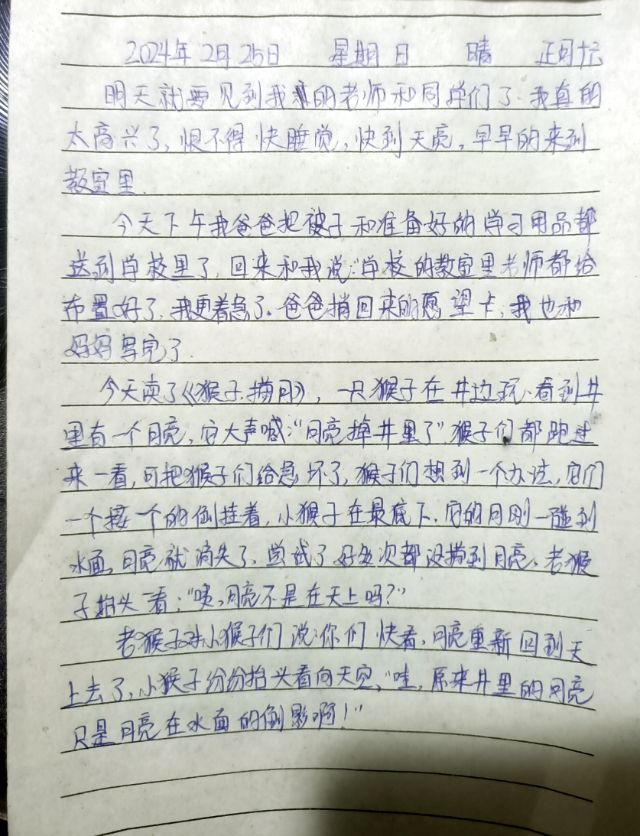 2024年2月25日 星期日 晴
明天就要见到我的老师和同学们了.我真的
太高兴了,恨不得快睡觉,快到天亮,早早的来到
教室里.
今天下午我爸爸把被子和准备好的学习用品都
送到学校里了,回来和我说:学校的教室里老师都给
布置好了,我更着急了.爸爸捎回来的愿望卡,我也和
妈妈写完了.
今天读了《猴子捞月》,一只猴子在井边玩.看到井
里有一个月亮,它大声喊:"月亮掉井里了"猴子们都跑过
来一看,可把猴子们给急坏了,猴子们想到一个办法,它们
一个接一个的倒挂着,小猴子在最底下.它的月刚一碰到
水面,月亮就消失了.尝试了好多次都没捞到月亮.老猴
子抬头一看:"咦,月亮不是在天上吗?"
老猴子对小猴子们说:你们快看,月亮重新回到天
上去了,小猴子纷纷抬头看向天空,"哇,原来井里的月亮
只是月亮在水面的倒影啊!"